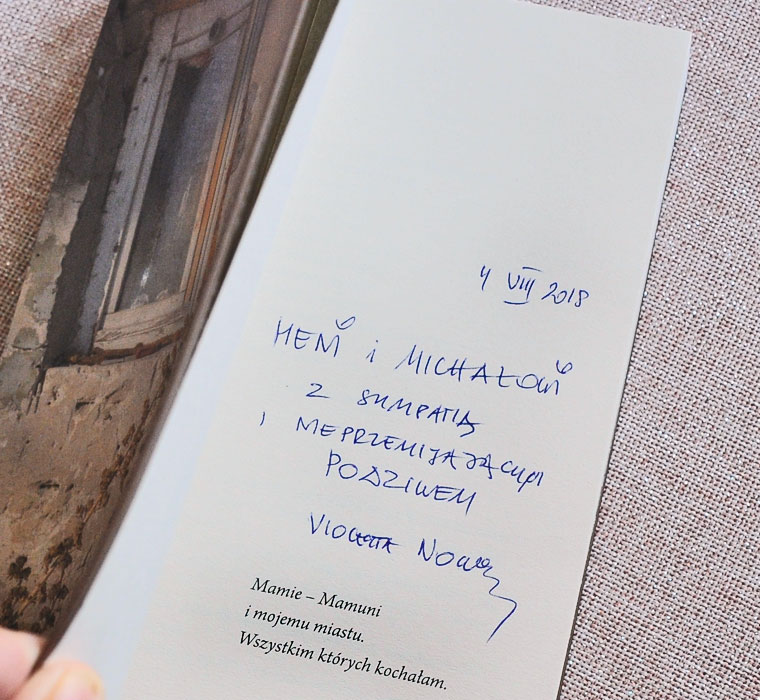 4 VIII 2018
HENI i MICHAŁOWI
Z SYMPATIĄ
i NIEPRZEMIJAJĄCYM
PODZIWEM
VIOLETTA
Mamie – Mamuni
i mojemu miastu.
Wszystkim których kochałam.